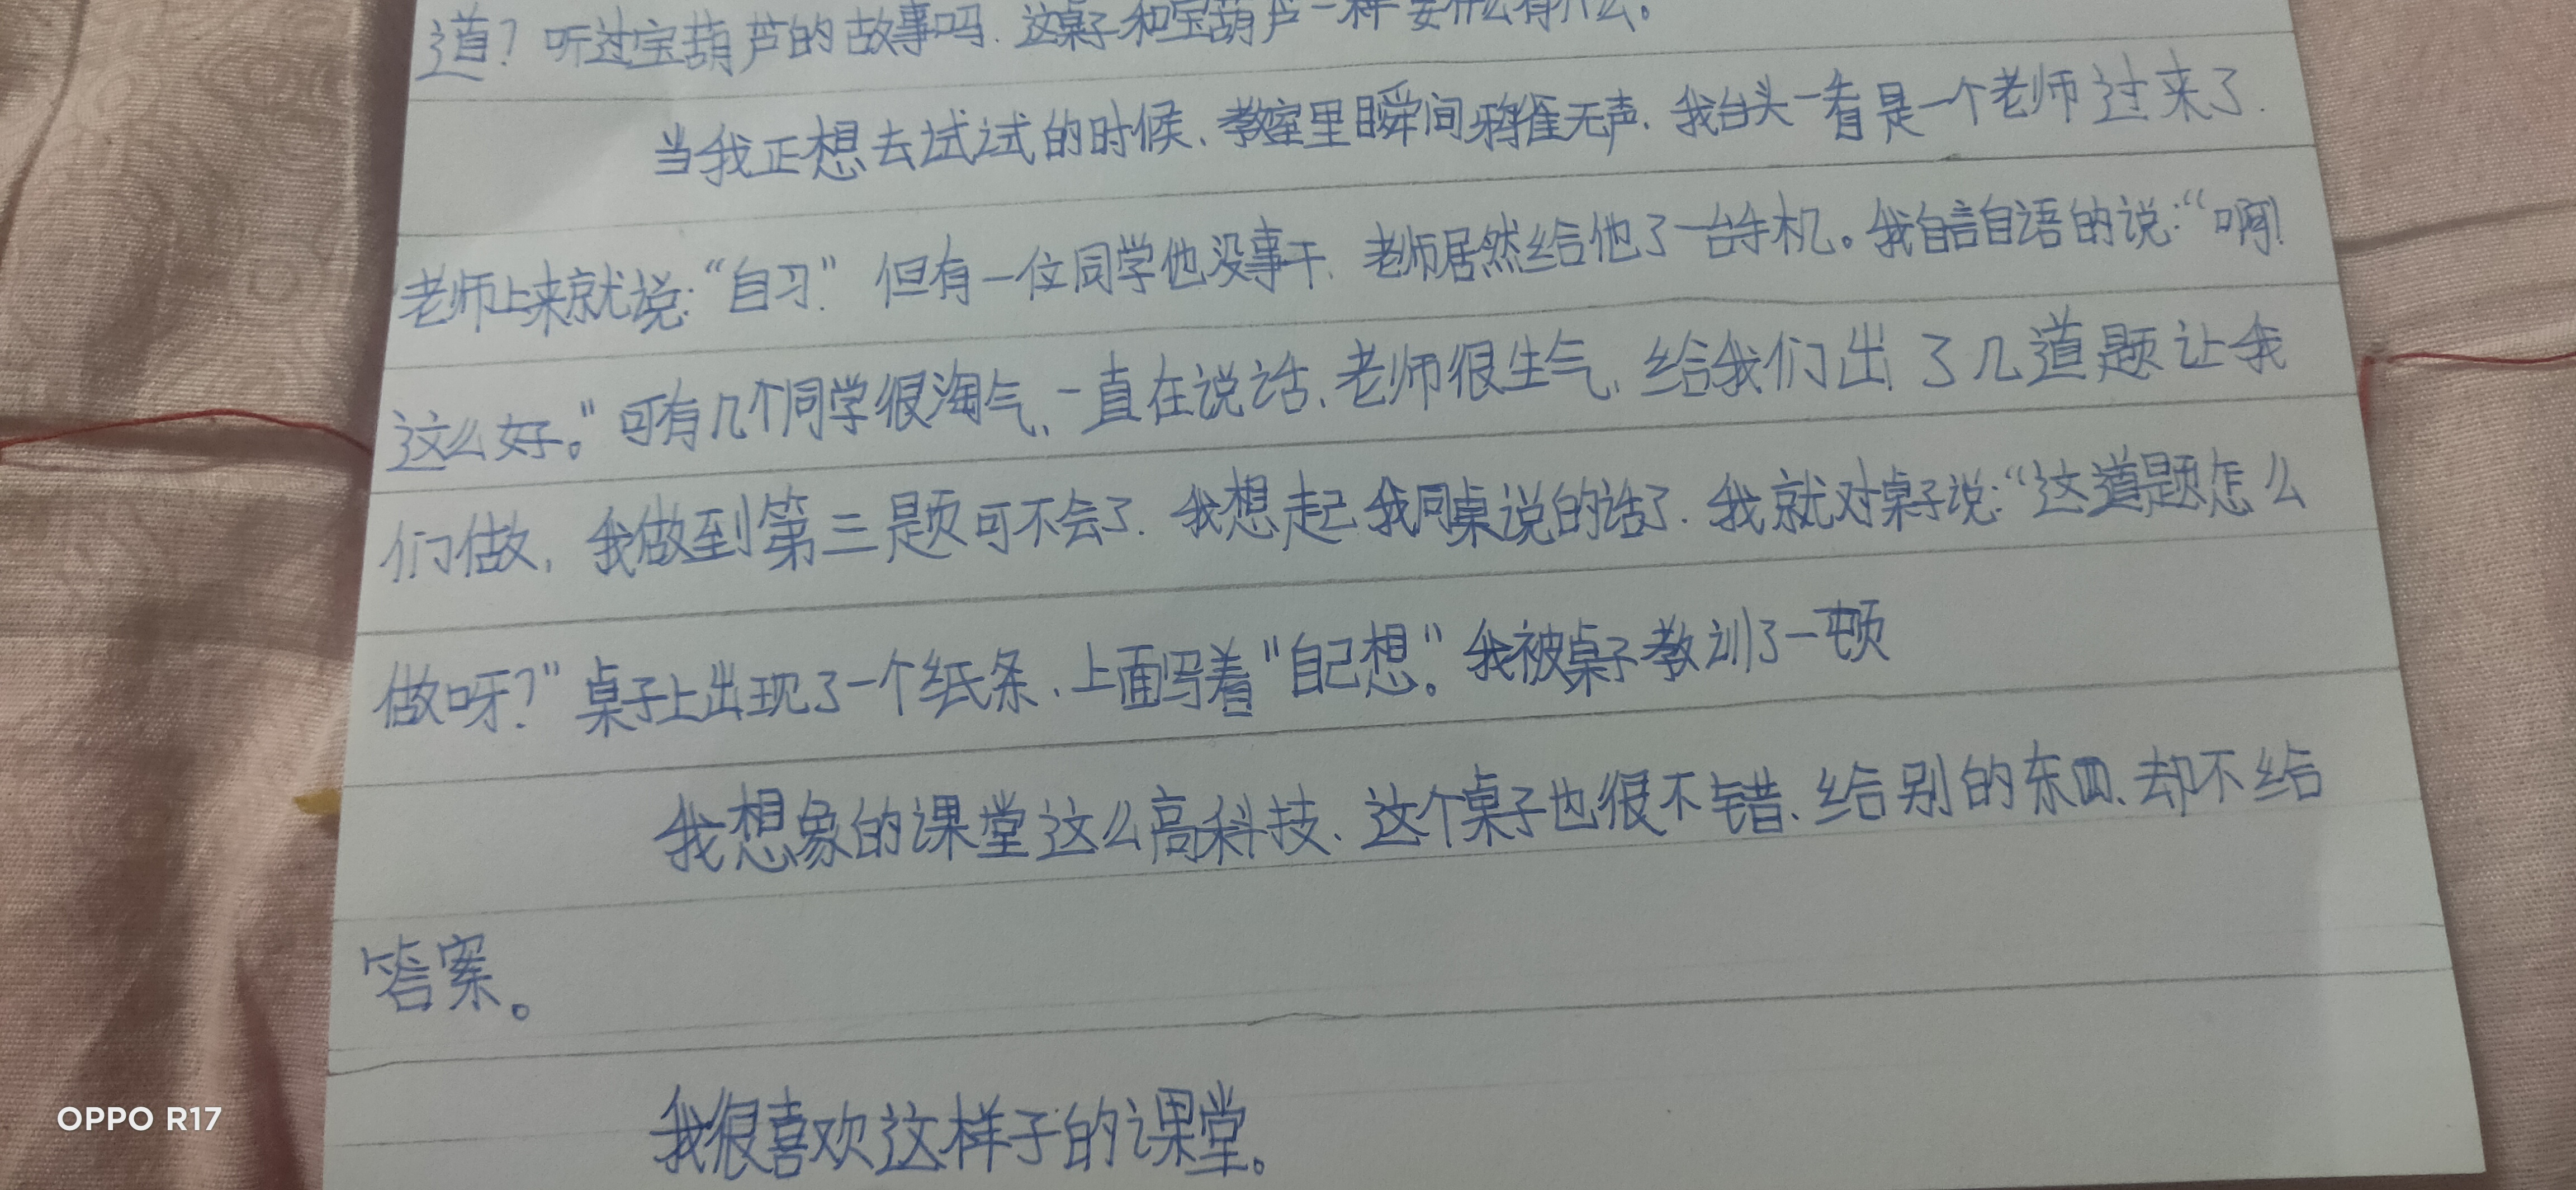 道？听过宝葫芦的故事吗.这桌子和宝葫芦一样要什么有什么。
当我正想去试试的时候、教室里瞬间鸦雀无声.我台头一看是一个老师过来了.
老师上来就说:“自习.”但有一位同学他没事干.老师居然给他了一台手机。我自言自语的说:“啊!
这么好。”可有几个同学很淘气、一直在说话、老师很生气、给我们出了几道题让我
们做,我做到第三题可不会了.我想起我同桌说的话了.我就对桌子说:“这道题怎么
做呀?”桌子上出现了一个纸条、上面写着“自己想。”我被桌子教训了一顿
我想象的课堂这么高科技、这个桌子也很不错、给别的东西、却不给
答案。
我很喜欢这样子的课堂。
OPPO R17